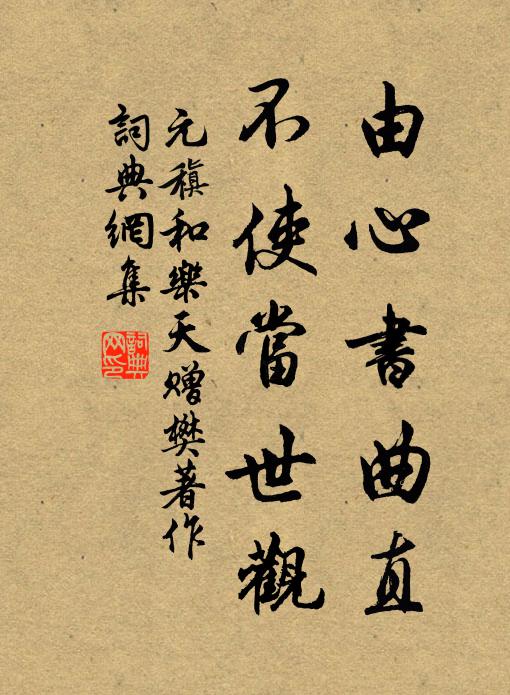 由心書曲直
不使當世觀
元稹和樂天贈樊著作
詞典網集
詞典
网印